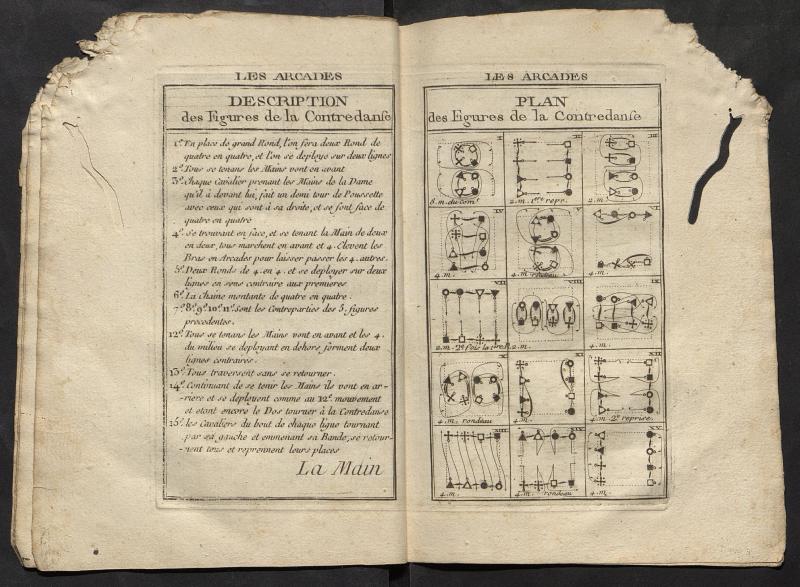 LES ARCADES
DESCRIPTION
des Figures de la Contredanse
1.º En place de grand Rond, l'on fera deux Rond de
quatre en quatre, et l'on se deploye sur deux lignes
2.º Tous se tenans les Mains vont en avant
3.º Chaque Cavalier prenant les Mains de la Dame
qu'il a devant lui, fait un demi tour de Poussette
avec ceux qui sont à sa droite, et se font face de
quatre en quatre
4.º Se trouvant en face, et se tenant la Main de deux
en deux, tous marchent en avant et 4. Elevent les
Bras en Arcades pour laisser passer les 4. autres.
5.º Deux Ronds de 4. en 4. et se deployer sur deux
lignes en sens contraire aux premieres
6.º La Chaine montante de quatre en quatre.
7.º 8.º 9.º 10.º 11.º Sont les Contreparties des 5. figures
precedentes.
12.º Tous se tenans les Mains vont en avant et les 4.
du milieu se deployant en dehors, forment deux
lignes contraires.
13.º Tous traversent sans se retourner.
14.º Continuant de se tenir les Mains ils vont en ar-
-riere et se deployent comme au 12.º mouvement
et etant encore le Dos tourner à la Contredanse
15.º les Cavaliers du bout de chaque ligne tournant
par sa gauche et emmenant sa Bande, se retour-
-nent tous et reprennent leurs places
La Main
LES ARCADES
PLAN
des Figures de la Contredanse
I II III
8. m. du Com.t 2. m. 1.ere repr. 2. m.
IV V VI
4. m. 4. m. rondeau 4. m.
VII VIII IX
2. m. 2.e fois la 1.ere R. 2. m. 4. m.
X XI XII
4. m. rondeau 4. m. 4. m. 2.e reprise.
XIII XIV XV
4. m. 4. m. rondeau 4. m.